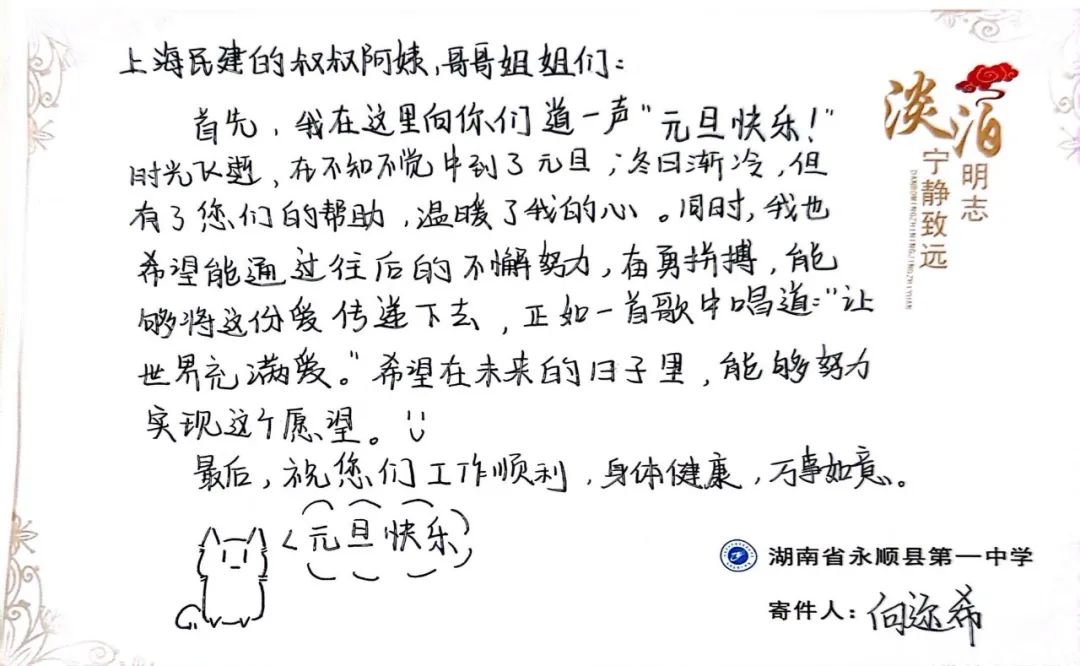 上海民建的叔叔阿姨,哥哥姐姐们:
首先,我在这里向你们道一声“元旦快乐!”
时光飞逝,在不知不觉中到了元旦;冬日渐冷,但
有了您们的帮助,温暖了我的心。同时,我也
希望能通过往后的不懈努力,奋勇拼搏,能
够将这份爱传递下去,正如一首歌中唱道:“让
世界充满爱。”希望在未来的日子里,能够努力
实现这个愿望。
最后,祝您们工作顺利,身体健康,万事如意。
元旦快乐
淡泊
明志
宁静致远
DANBOMINGZHININGJINGZHIYUAN
湖南省永顺县第一中学
寄件人:向弥希